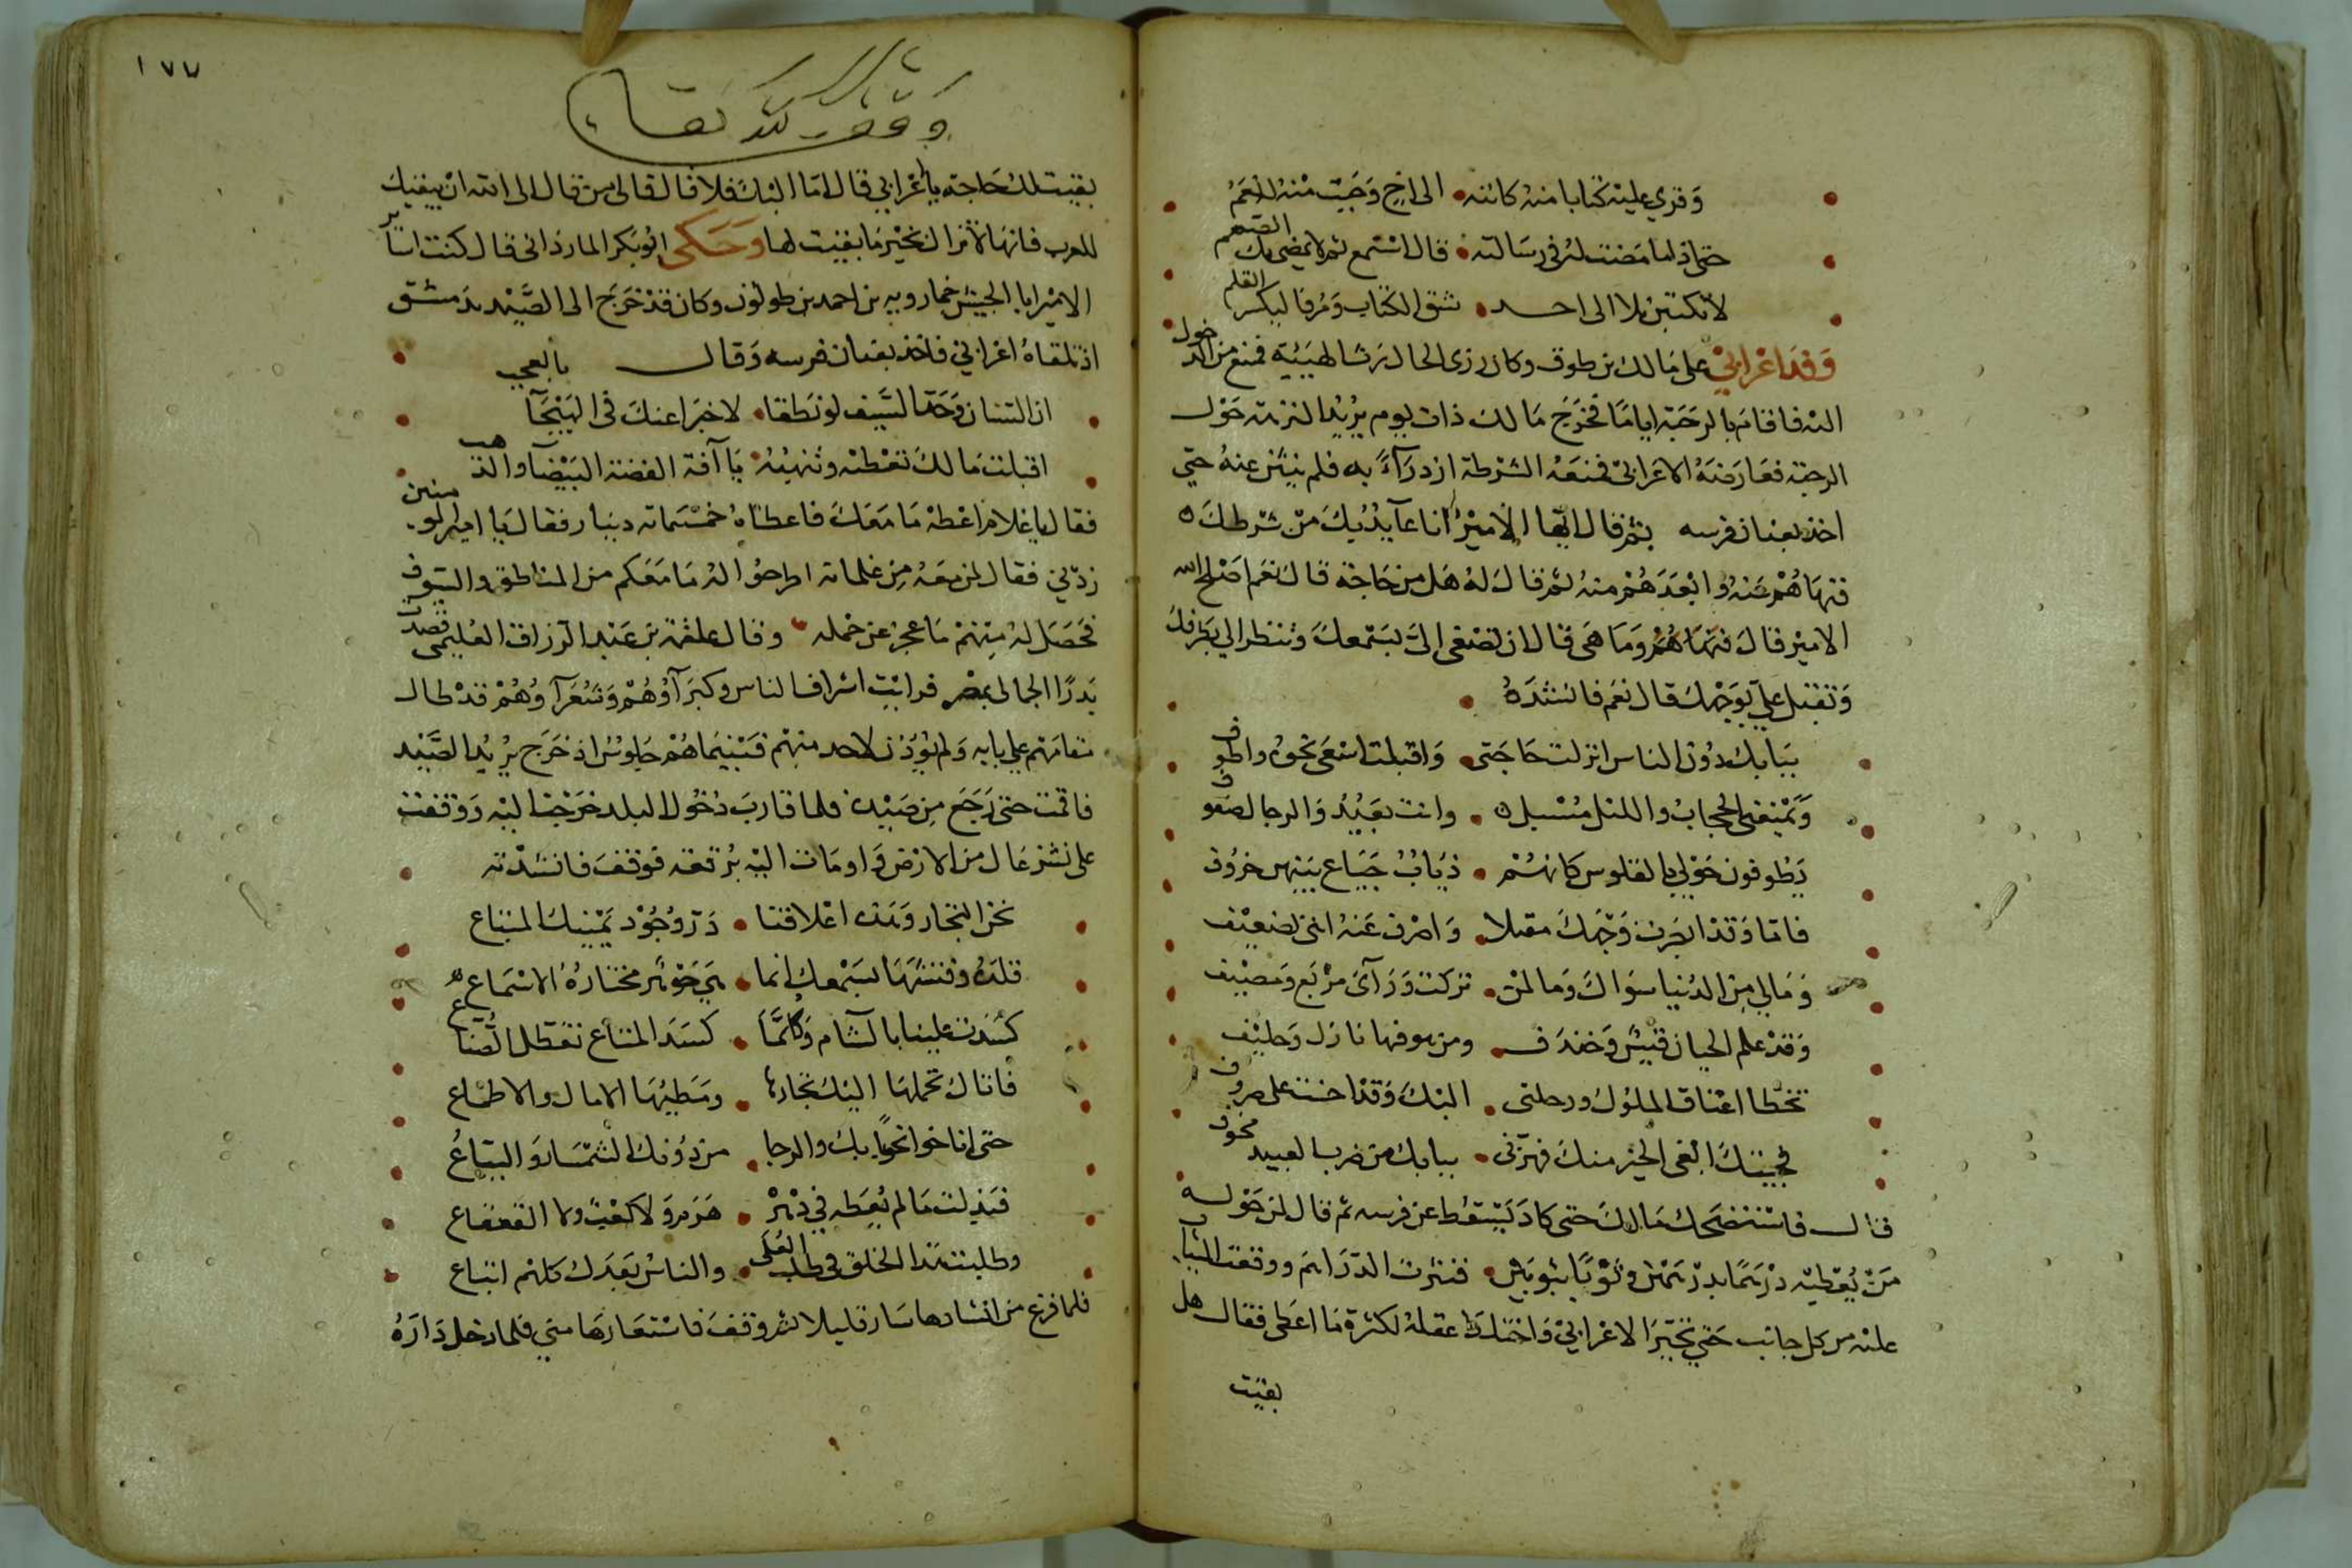 وقري عليه كتابا منه كاتبه • الى اخ وجبت منه له نعم
حتى اذا ما مضت له في رسالته • قال استمع ثم لا يمضي بك الصمم
لا تكتبن بلا الى احد • شق الكتاب ومر فاليكسر القلم
وفد اعرابي على مالك بن طوق وكان زرى الحال رث الهيئة فمنع من الدخول
اليه فاقام بالرحبة اياما فخرج مالك ذات يوم يريد النزهة حول
الرحبة فعارضه الاعرابي فمنعه الشرطة ازدرآء به فلم ينثن عنه حتى
اخذ بعنان فرسه ثم قال ايها الامير انا عآيذ بك من شرطك
فنهاهم عنه وابعدهم منه ثم قال له هل من حاجة قال نعم اصلح الله
الامير قال فنهاهم وما هى قال ان تصغى الى بسمعك وتنظر الي بطرفك
وتقبل علي بوجهك قال نعم فانشده
ببابك دون الناس انزلت حاجتى • واقبلت اسعى نحوه واطوف
ويمنعني الحجاب والليل مسبل • وانت بعيد والرجال صفوف
يطوفون حولي بالقلوس كانهم • ذياب جياع بينهن خروف
فاما وقد ابصرت وجهك مقبلا • واصرف عنه انني لضعيف
ومالي من الدنيا سواك وما لمن • تركت ورآى مربع ومصيف
وقد علم الحيان قيس وخندف • ومن هو فيها نازل وحليف
تخطا اعناق الملوك ورحلتى • اليك وقد اخنت على صروف
فجيتك ابغى الخير منك فهزنى • ببابك من ضرب العبيد مخوف
قال فاستضحك مالك حتى كاد يسقط عن فرسه ثم قال لمن حوله
من يعطيه درهما بدرهمين وثوبا بثوبين • فنثرت الدراهم ووقعت الثياب
عليه من كل جانب حتي تحير الاعرابي واختلط عقله لكثرة ما اعطى فقال هل
بقيت
١٧٧
وقف لله تعالى
بقيت لك حاجة يا اعرابي قال اما اليك فلا قال فالى من قال الى الله ان يبقيك
للعرب فانها لا تزال بخير ما بقيت لها وحكى ابو بكر المارذانى قال كنت اساير
الامير ابا الجيش خمارويه بن احمد بن طولون وكان قد خرج الى الصيد بدمشق
اذ تلقاه اعرابي فاخذ بعنان فرسه وقال
ان السنان وحد السيف لو نطقا • لاخبرا عنك فى الهيجآ بالعجب
اقبلت مالك تعطيه وتنهبه • يا آفة الفضة البيضآ والذهب
فقال يا غلام اعطه ما معك فاعطاه خمسماته دينار فقال يا امير المومنين
زدني فقال لمن معه من غلمانه اطرحوا له ما معكم من المناطق والسيوف
فحصل له منهم ما عجز عن حمله وقال علقمة بن عبد الرزاق العليمى قصدت
بدرا الجمالى بمصر فرايت اشراف الناس وكبرآؤهم وشعرآؤهم قد طال
مقامهم علي بابه ولم يؤذن لاحد منهم فبينما هم جلوس اذ خرج يريد الصيد
فاقمت حتى رجع من صيده فلما قارب دخول البلد خرجت اليه ووقفت
على نشز عال من الارض واومات اليه برقعه فوقف فانشدته
نحن التجار وهذه اعلاقنا • در وجود يمينك المبتاع
قلده وفتشها بسمعك انما • هي جوهر مختاره الاسماع
كسدت علينا بالشآم وكلما • كسد المتاع تعطل الصناع
فاتاك تحملها اليك تجارها • ومطيها الامال والاطماع
حتى اناخوا نحو بابك والرجا • من دونك السمسار والبياع
فبذلت مالم يعطه في دهره • هرم ولا كعب ولا القعقاع
وطلبت هذا الخلق في طلب العلى • والناس بعدك كلهم اتباع
فلما فرغ من انشادها سار قليلا ثم وقف فاستعارها مني فلما دخل داره